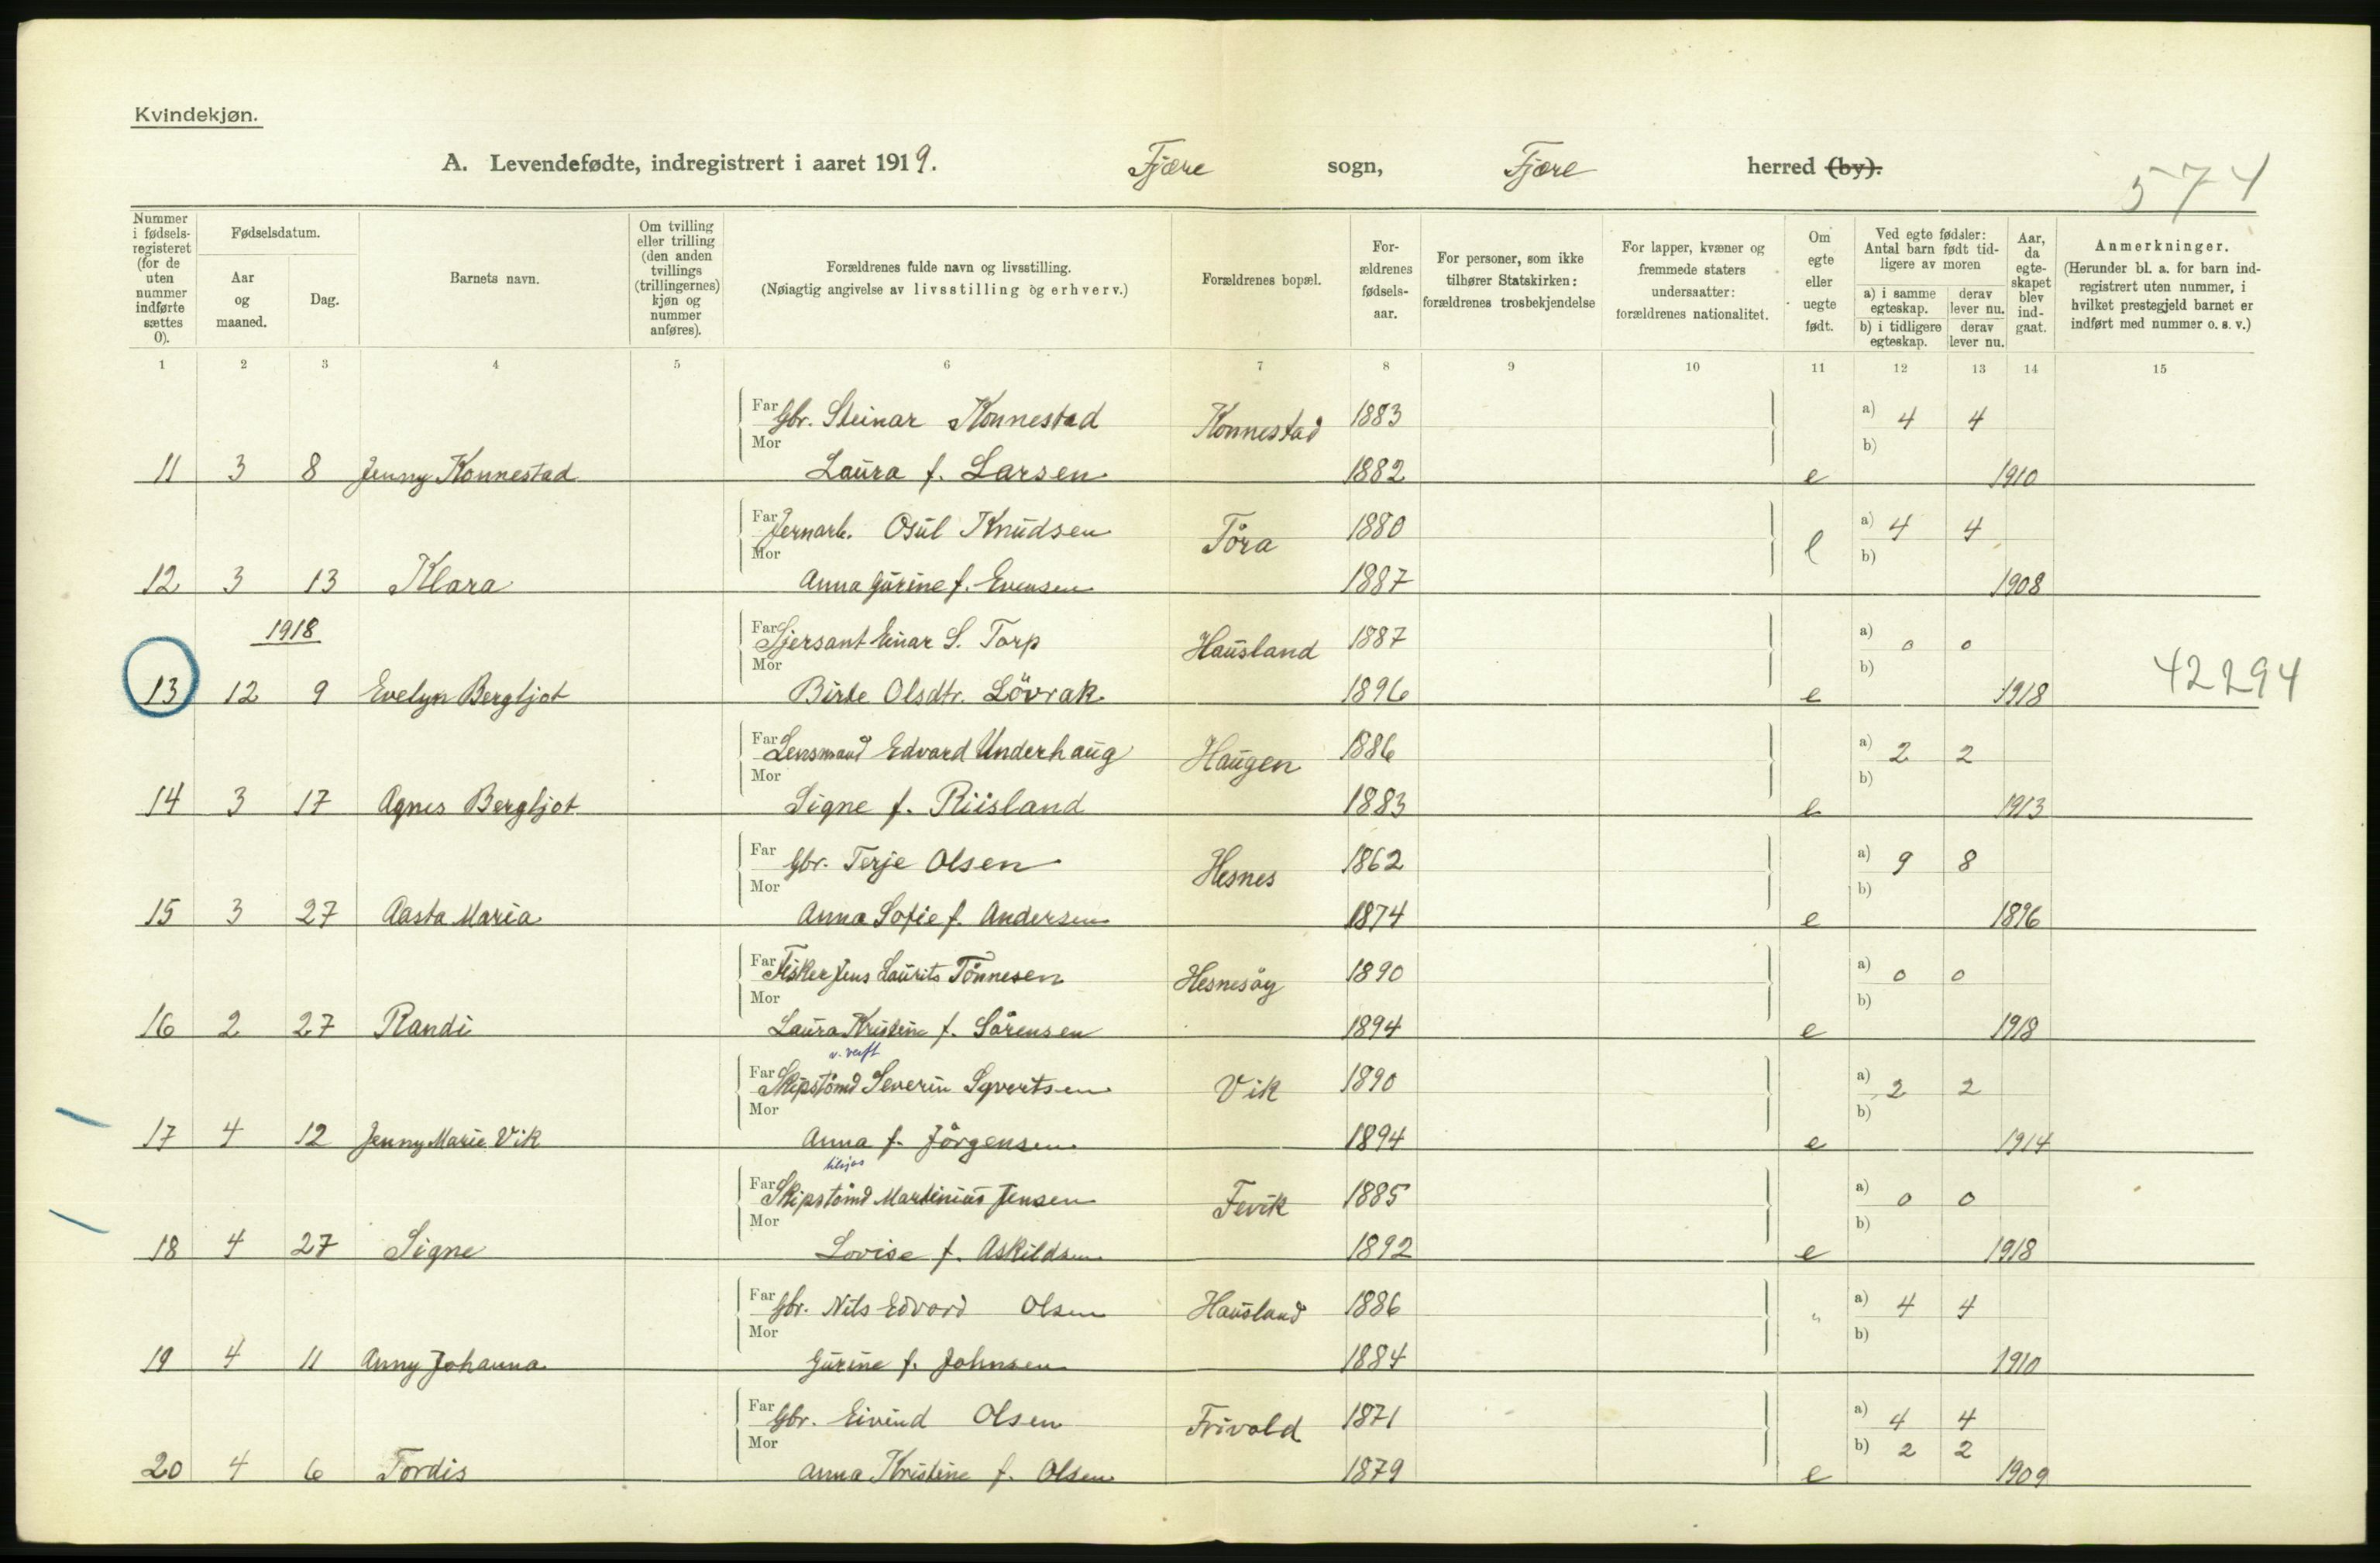 Kvindekjøn.
A. Levendefødte, indregistrert i aaret 1919. Fjære sogn, Fjære herred (by).
574
Nummer i fødsels-registeret (for de uten nummer indførte sættes 0).
Fødselsdatum.
Aar og maaned.
Dag.
Barnets navn.
Om tvilling eller trilling (den anden tvillings (trillingernes) kjøn og nummer anføres).
Forældrenes fulde navn og livsstilling.
(Nøiagtig angivelse av livsstilling og erhverv.)
Forældrenes bopæl.
For-ældrenes fødsels-aar.
For personer, som ikke tilhører Statskirken: forældrenes trosbekjendelse
For lapper, kvæner og fremmede staters undersaatter: forældrenes nationalitet.
Om egte eller uegte født.
Ved egte fødsler: Antal barn født tid-ligere av moren
a) i samme egteskap. derav lever nu.
b) i tidligere egteskap. derav lever nu.
Aar, da egte-skapet blev ind-gaat.
Anmerkninger.
(Herunder bl. a. for barn ind-registrert uten nummer, i hvilket prestegjeld barnet er indført med nummer o. s. v.)
1 2 3 4 5 6 7 8 9 10 11 12 13 14 15
Far Gbr. Steinar Konnestad Konnestad 1883 a) 4 4
Mor b)
11 3 8 Jenny Konnestad Laura f. Larsen 1882 e 1910
Far Jernarb. Osul Knudsen Tøra 1880 a) 4 4
Mor b)
12 3 13 Klara Anna Gurine f. Evensen 1887 e 1908
1918
Far Sjersant Einar S. Torp Hausland 1887 a) 0 0
Mor b)
13 12 9 Evelyn Bergljot Birte Olsdtr. Lövrak 1896 e 1918 42294
Far Lensmand Edvard Underhaug Haugen 1886 a) 2 2
Mor b)
14 3 17 Agnes Bergljot Signe f. Riisland 1883 e 1913
Far Gbr. Terje Olsen Hesnes 1862 a) 9 8
Mor b)
15 3 27 Aasta Maria Anna Sofie f. Andersen 1874 e 1896
Far Fisker Jens Laurits Tönnesen Hesnesöy 1890 a) 0 0
Mor b)
16 2 27 Randi Laura Kristine f. Sörensen 1894 e 1918
v. verft
Far Skipstömd Severin Syvertsen Vik 1890 a) 2 2
Mor b)
17 4 12 Jenny Marie Vik Anna f. Jörgensen 1894 e 1914
Far Skipstömd Martinius Jensen Fevik 1885 a) 0 0
Mor b)
18 4 27 Signe Lovise f. Askildsen 1892 e 1918
Far Gbr. Nils Edvard Olsen Hausland 1886 " a) 4 4
Mor b)
19 4 11 Anny Johanna Gurine f. Johnsen 1884 1910
Far Gbr. Eivind Olsen Frivold 1871 a) 4 4
Mor b) 2 2
20 4 6 Tordis Anna Kristine f. Olsen 1879 e 1909